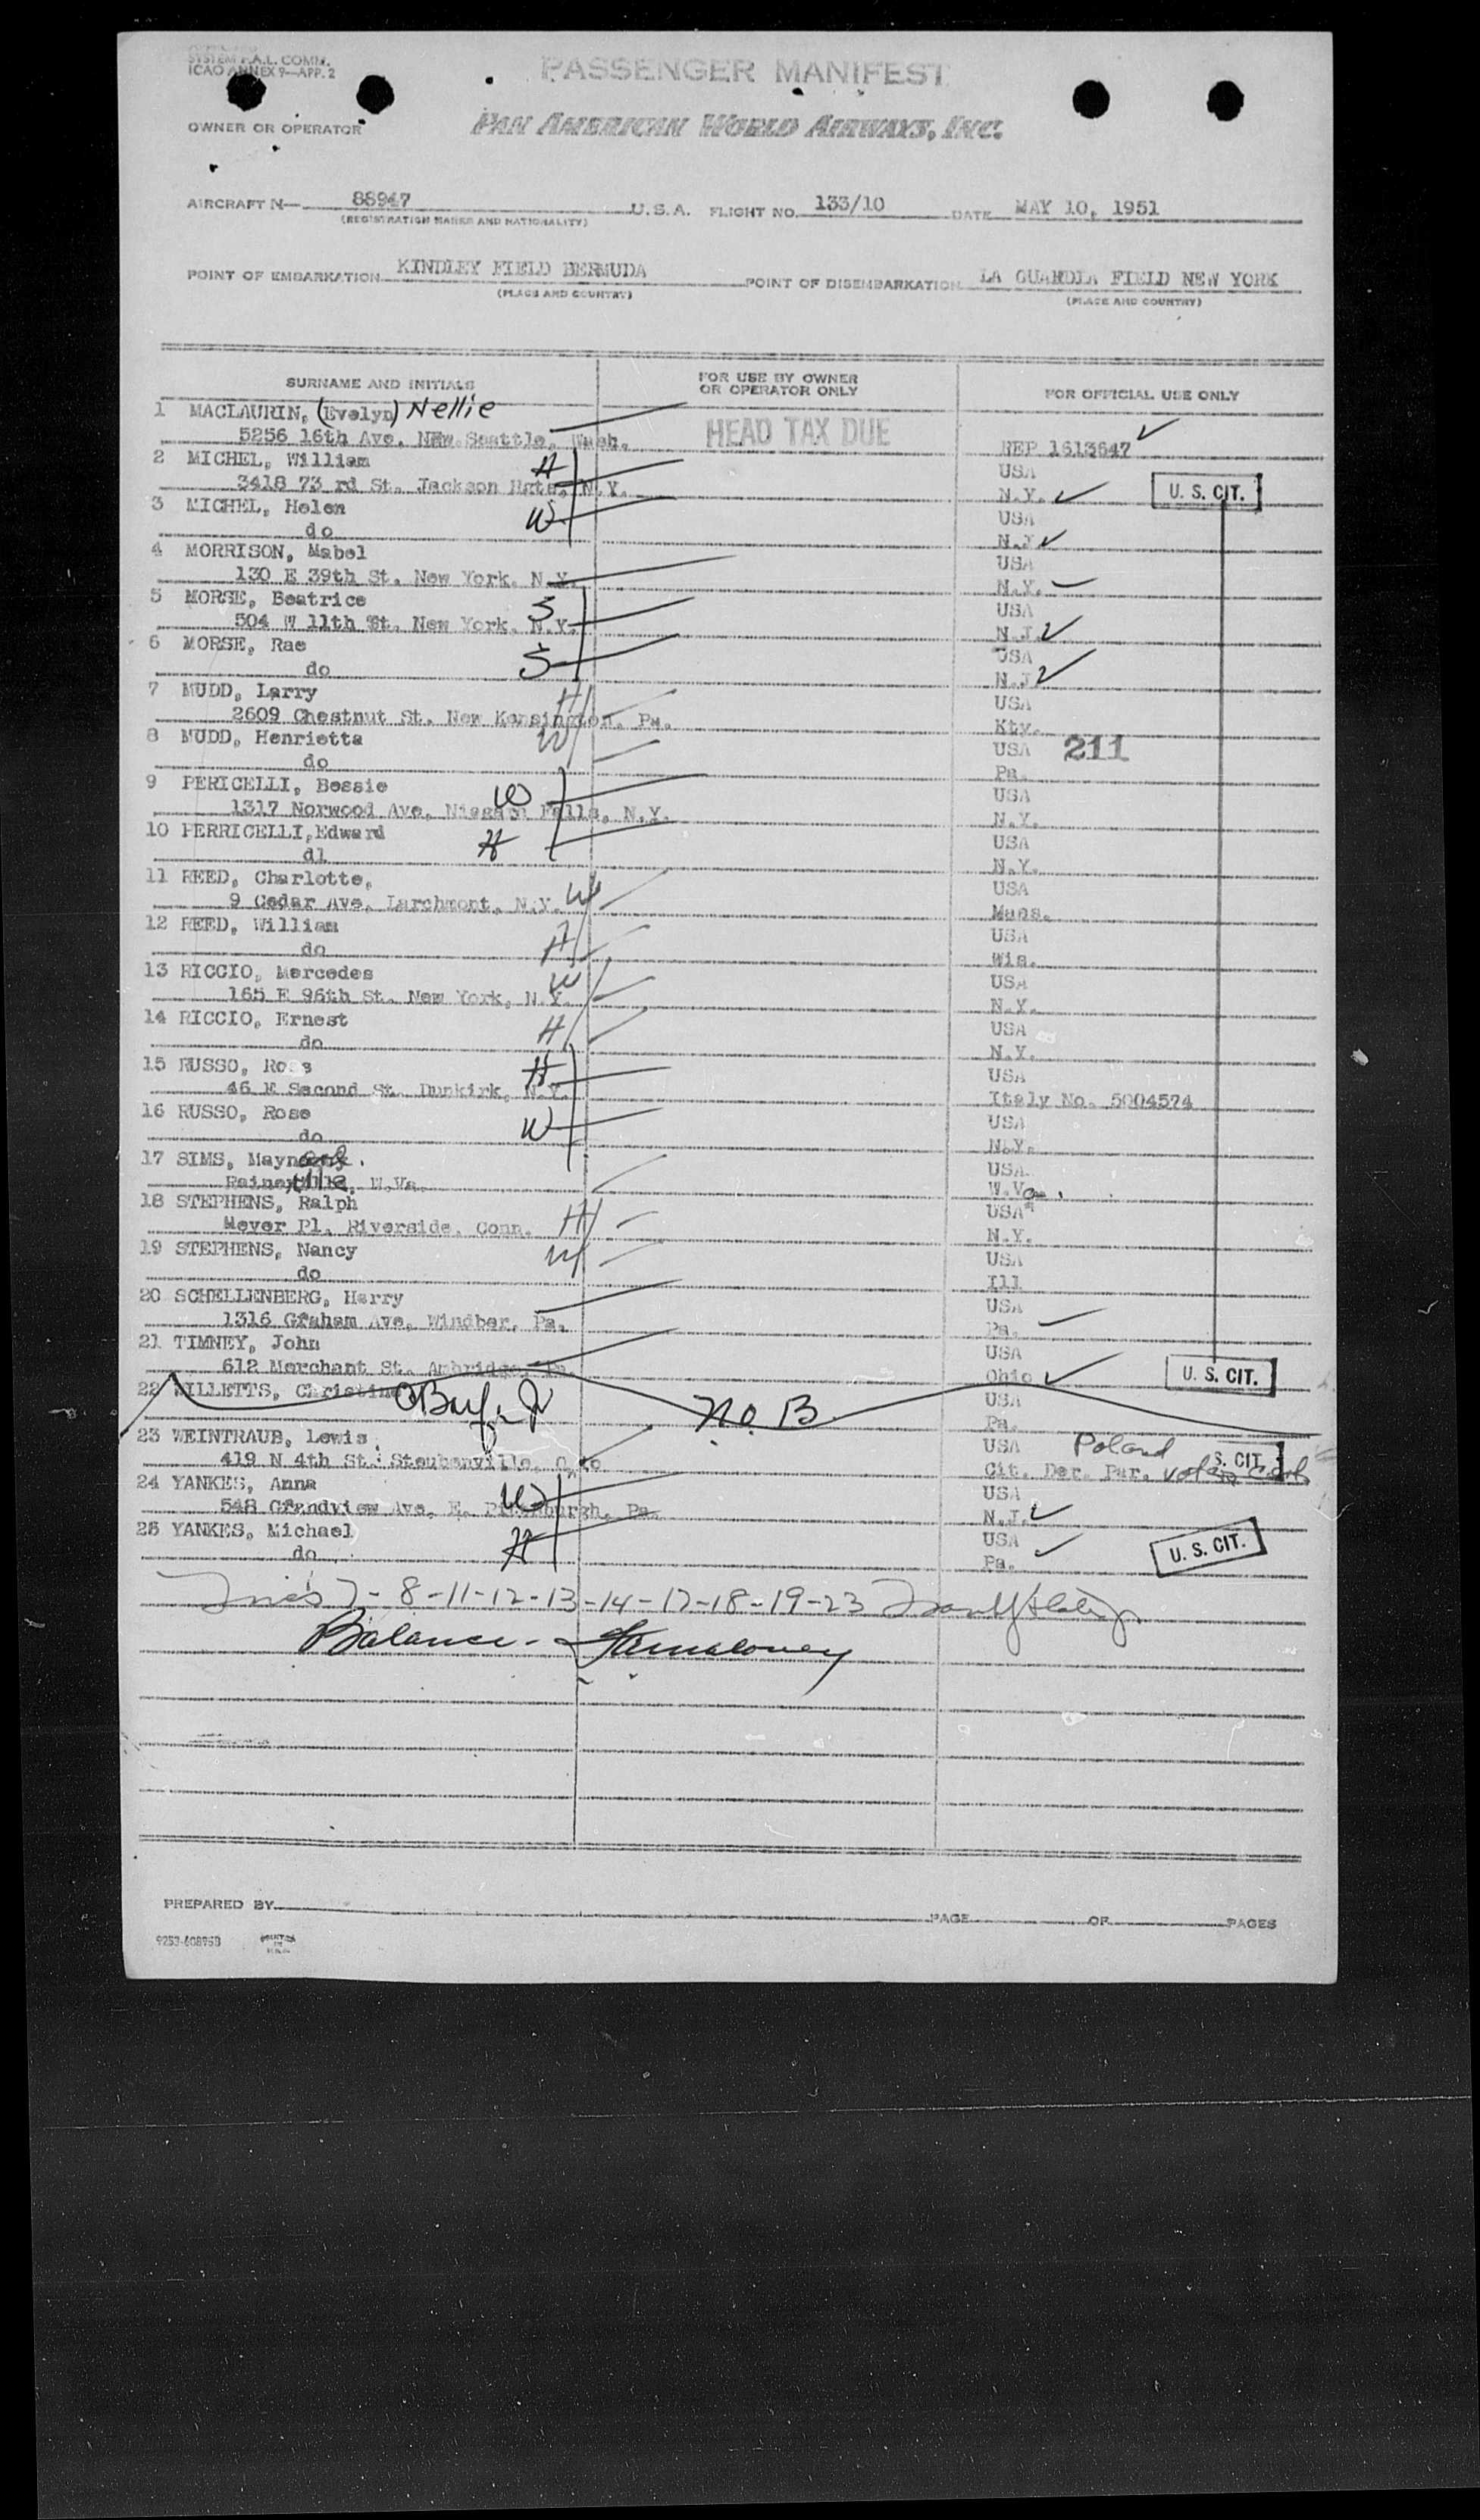 SYSTEM F.A.L. COMM.
ICAO ANNEX 9—APP. 2
PASSENGER MANIFEST
OWNER OR OPERATOR
PAN AMERICAN WORLD AIRWAYS, INC.
AIRCRAFT N— 88947 U.S.A. FLIGHT NO. 133/10 DATE MAY 10, 1951
(REGISTRATION MARKS AND NATIONALITY)
POINT OF EMBARKATION KINDLEY FIELD BERMUDA POINT OF DISEMBARKATION LA GUARDIA FIELD NEW YORK
(PLACE AND COUNTRY) (PLACE AND COUNTRY)
SURNAME AND INITIALS FOR USE BY OWNER OR OPERATOR ONLY FOR OFFICIAL USE ONLY
1 MACLAURIN, (Evelyn) Nellie
5256 16th Ave. NEW. Seattle, Wash. HEAD TAX DUE REP 1613647
2 MICHEL, William H USA
3418 73 rd St. Jackson Hgts. N.Y. N.Y. U. S. CIT.
3 MICHEL, Helen W USA
do N.Y.
4 MORRISON, Mabel USA
130 E 39th St. New York. N.Y. N.Y.
5 MORSE, Beatrice S USA
504 W 11th St. New York. N.Y. N.J.
6 MORSE, Rae S USA
do N.J.
7 MUDD, Larry H USA
2609 Chestnut St. New Kensington. Pa. Kty.
8 MUDD, Henrietta W USA 211
do Pa.
9 PERICELLI, Bessie W USA
1317 Norwood Ave. Niagara Falls, N.Y. N.Y.
10 PERRICELLI, Edward H USA
dl N.Y.
11 REED, Charlotte, USA
9 Cedar Ave. Larchmont, N.Y. W Mass.
12 REED, William H USA
do Wis.
13 RICCIO, Mercedes W USA
165 E 96th St. New York, N.Y. N.Y.
14 RICCIO, Ernest H USA
do N.Y.
15 RUSSO, Ross H USA
46 E Second St. Dunkirk, N.Y. Italy No. 5004574
16 RUSSO, Rose W USA
do N.Y.
17 SIMS, Maynard. USA
Rainelle, W.Va. W.Va.
18 STEPHENS, Ralph USA
Meyer Pl. Riverside. Conn. H N.Y.
19 STEPHENS, Nancy W USA
do Ill
20 SCHELLENBERG, Harry USA
1316 Graham Ave. Windber, Pa. Pa.
21 TIMNEY, John USA
612 Merchant St. Ambridge Pa. Ohio U. S. CIT.
22 WILLETTS, Christine N.O.B. USA
Pa.
23 WEINTRAUB, Lewis USA Poland
419 N 4th St. Steubenville, Ohio Cit. Der. Par. voting card S. CIT.
24 YANKES, Anna W USA
548 Grandview Ave, E. Pittsburgh, Pa. N.J.
25 YANKES, Michael H USA
do Pa. U. S. CIT.
7-8-11-12-13-14-17-18-19-23
Balance -
PREPARED BY PAGE OF PAGES